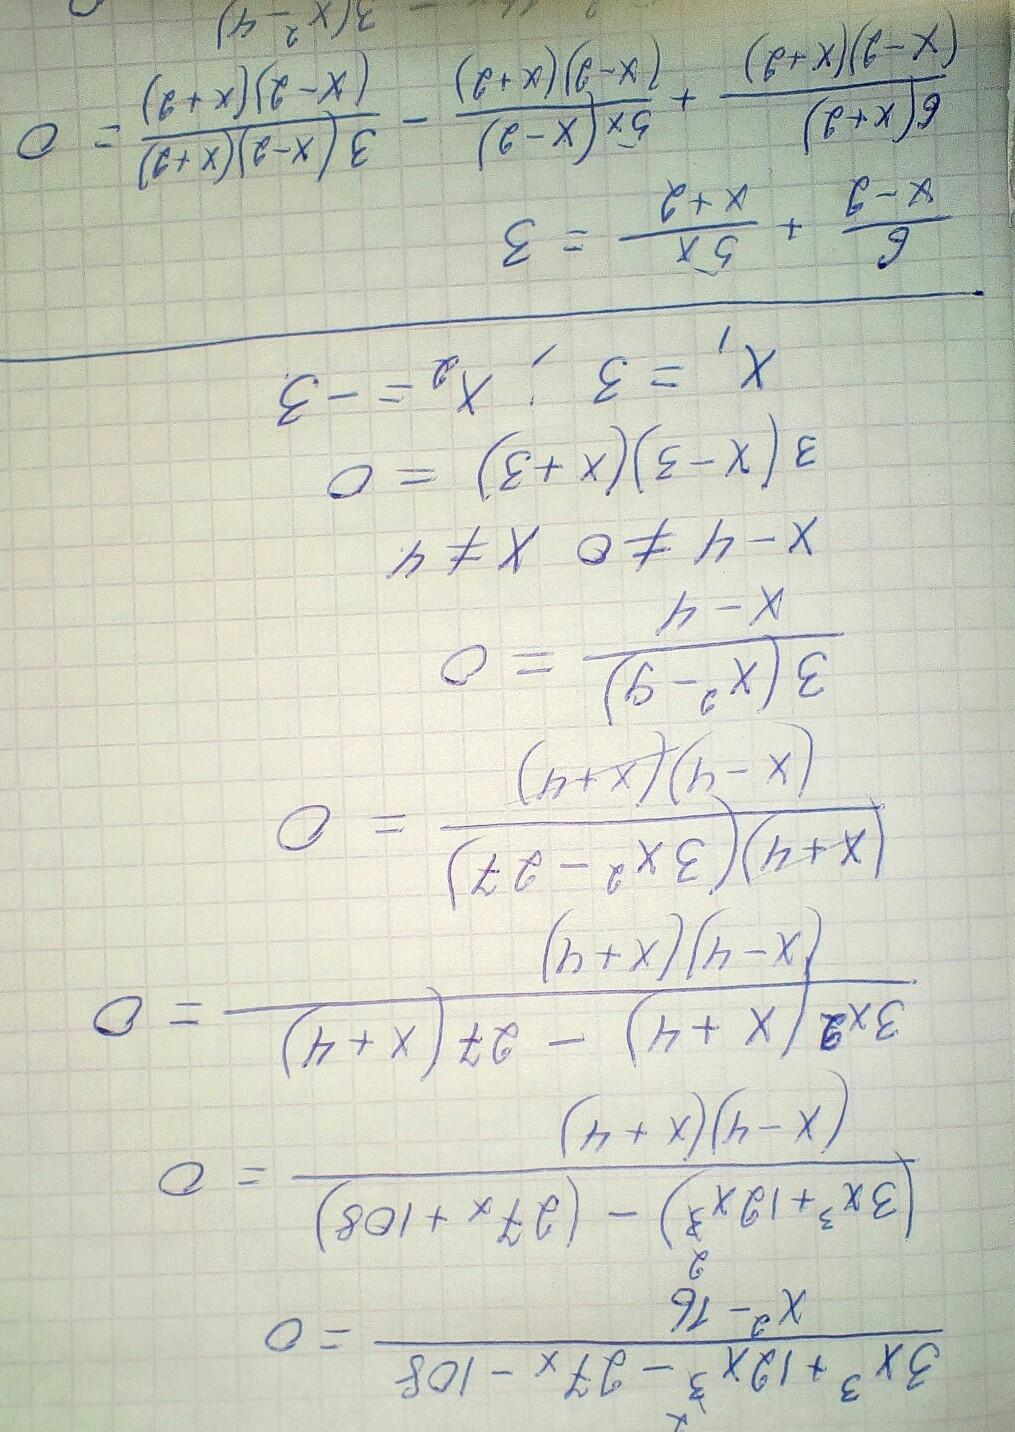 (3x³ + 12x² - 27x - 108)/(x² - 16) = 0
((3x³ + 12x²) - (27x + 108))/((x - 4)(x + 4)) = 0
(3x²(x + 4) - 27(x + 4))/((x - 4)(x + 4)) = 0
((x + 4)(3x² - 27))/((x - 4)(x + 4)) = 0
3(x² - 9)/(x - 4) = 0
x - 4 ≠ 0 x ≠ 4
3(x - 3)(x + 3) = 0
x₁ = 3 ; x₂ = -3
6/(x - 2) + 5x/(x + 2) = 3
6(x + 2)/((x - 2)(x + 2)) + 5x(x - 2)/((x - 2)(x + 2)) - 3(x - 2)(x + 2)/((x - 2)(x + 2)) = 0
3(x² - 4)